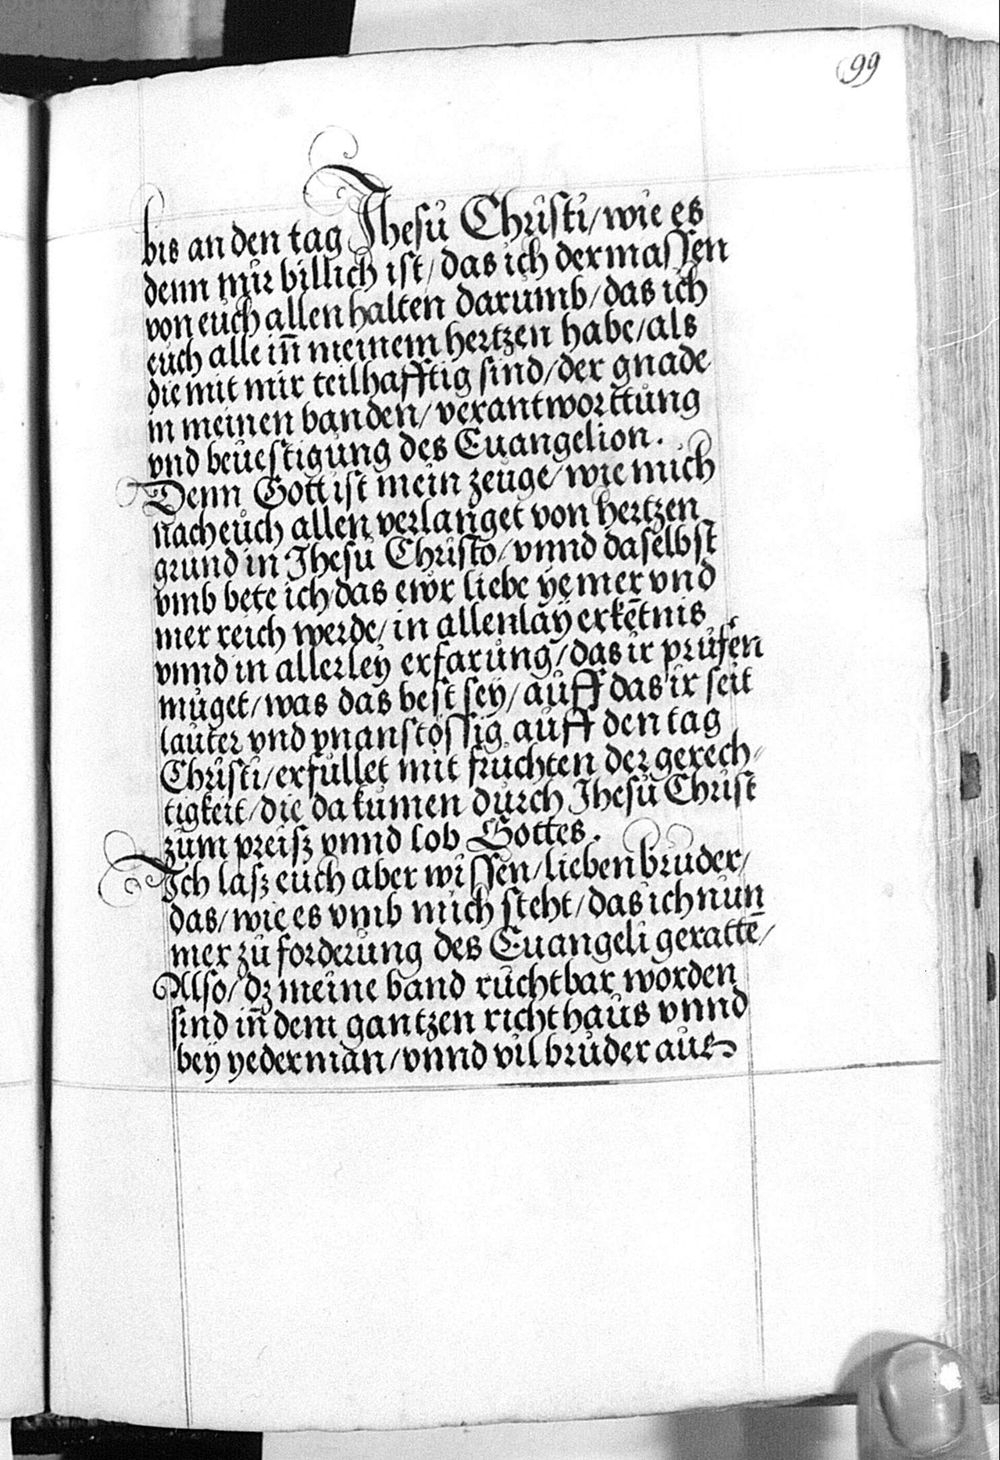 99
bis an den tag Jhesu Christi/wie es
denn mir billich ist/das ich dermassen
von euch allen halten darumb/das ich
euch alle iñ meinem hertzen habe/als
die mit mir teilhafftig sind/der gnade
in meinen banden/verantworttung
vnd beuestigung des Euangelion.
Denn Gott ist mein zeuge/wie mich
nach euch allen verlanget von hertzen
grund in Jhesu Christo/vnnd daselbst
vmb bete ich/das ewr liebe ye mer vnd
mer reich werde/in allenlay erkētnis
vnnd in allerley erfarung/das ir prufen
muget/was das best sey/auff das ir seit
lauter vnd vnanstössig auff den tag
Christi/erfullet mit fruchten der gerech-
tigkeit/die da kumen durch Jhesu Christ
zum preisz vnnd lob Gottes.
Ich lasz euch aber wissen/lieben bruder/
das/wie es vmb mich steht/das ich nun
mer zu forderung des Euangeli gerattē/
Also/dz meine band ruchtbar worden
sind iñ dem gantzen richthaus vnnd
bey yederman/vnnd vil bruder aus